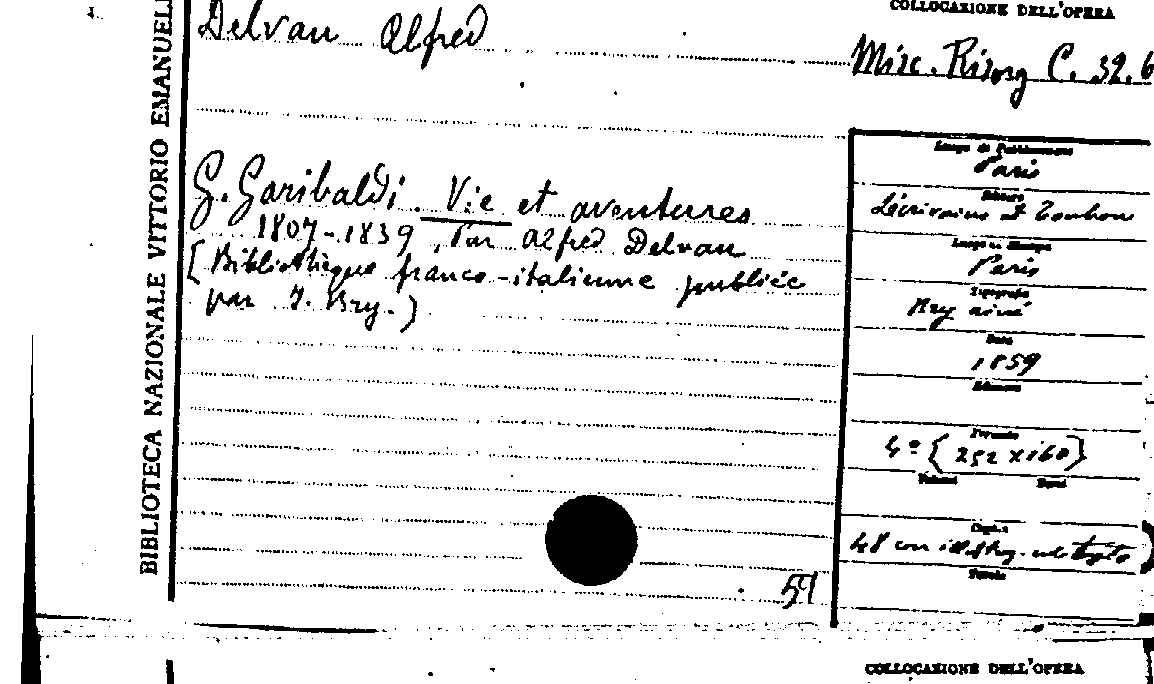 COLLOCAZIONE DELL'OPERA
Delvau Alfred
Misc. Risorg C. 32.6
BIBLIOTECA NAZIONALE VITTORIO EMANUEL
G. Garibaldi. Vie et aventures
1807-1839, Par Alfred Delvau
[Bibliothèque franco-italienne publiée
par J. Bry.)
Luogo di Pubblicazione
Paris
Editore
Lécrivain et Toubon
Luogo di Stampa
Paris
Tipografia
Bry aîné
Data
1859
Edizione
Formato
4º (252 x 160)
Volumi Tomi
48 con illustraz. nel testo
Tavole
59
COLLOCAZIONE DELL'OPERA